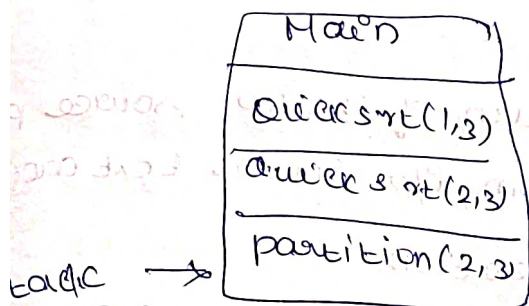 Main
Quicksort(1,3)
Quicksort(2,3)
partition(2,3)